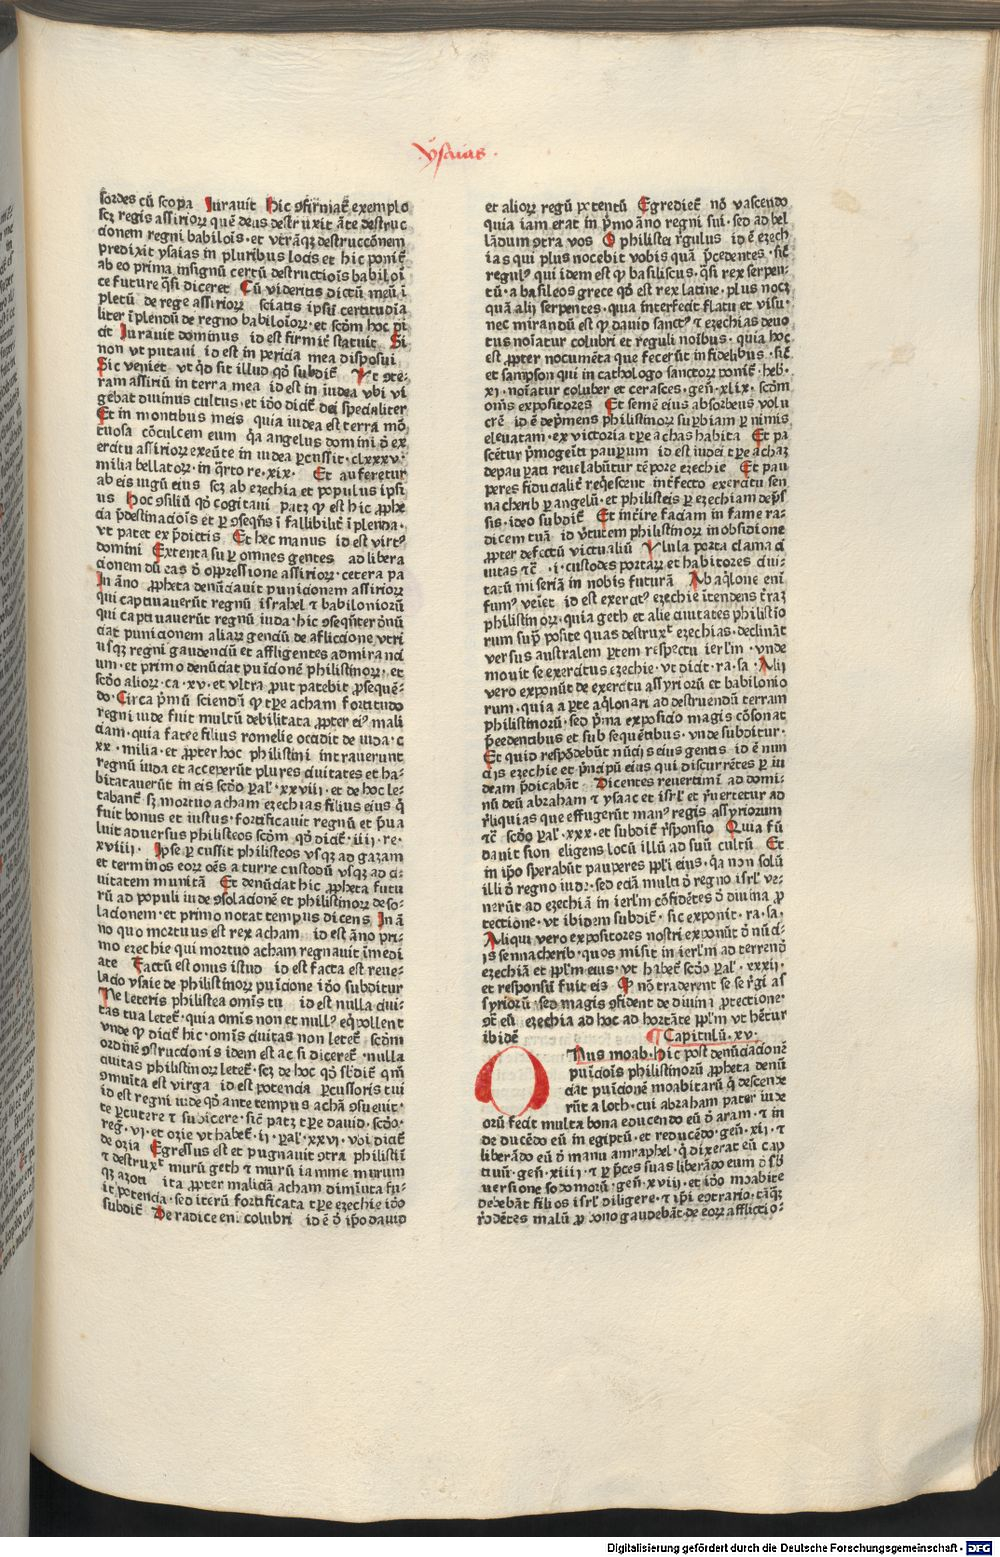 ysaias
sordes cū scopa Iurauit Hic ꝯfirmat̄ exemplo
scꝫ regis assirioꝝ quē deus destruxit āte destruc
cionem regni babilois · et vtrāqꝫ destruccōnem
predixit ysaias in pluribus locis et hic ponit̄
ab eo prima insignū certū destructiois babiloī
ce future q̄si diceret Cū videritis dictū meū ī
pletū de rege assirioꝝ sciatis ipsū certitudīa
liter īplendū de regno babiloīoꝝ · et scdm hoc di
cit Iurauit dominus id est firmit̄ statuit Si
non vt putaui id est in pericia mea disposui
Sic veniet vt qd sit illud qd subdit̄ Vt ꝯte-
ram assiriū in terra mea id est in iudea vbi vi
gebat diuinus cultus · et iō dicit̄ dei specialiter
Et in montibus meis quia iudea est terra mō
tuosa cōculcem eum qa angelus domini d̄ ex
ercitu assirioꝝ exeūte in iudea ꝑcussit · clxxxv ·
milia bellatoꝝ · in q̄rto re · xix · Et auferetur
ab eis iugū eius scꝫ ab ezechia et populus ipsi
us Hoc ꝯsiliū qd cogitaui patꝫ ꝙ est hic ꝓphe
cia p̄destinaciois et ꝑ ꝯseqn̄s ī fallibilit̄ īplenda ·
vt patet ex p̄dictis Et hec manus id est virtꝰ
domini Extenta suꝑ omnes gentes ad libera
cionem dū eas d̄ oppressione assirioꝝ · cetera pa
In āno ꝓpheta denūciauit punicionem assirioꝝ
qui captiuauerūt regnū israhel et babilonioꝝ
qui captiuauerūt regnū iuda · hic ꝯseqn̄ter d̄nū
ciat punicionem aliaꝝ genciū de afliccione vtri
usqꝫ regni gaudenciū et affligentes admiranci
um · et primo denūciat puīcionē philistinoꝝ · et
scdo alioꝝ · ca · xv · et vltra ꝓut patebit ꝓsequē-
do · Circa p̄mū sciendū ꝙ tꝑe acham fortitudo
regni iude fuit multū debilitata ꝓpter eiꝰ mali
ciam · quia facee filius romelie occidit de iuda · c
xx · milia · et ꝓpter hoc philistini intrauerunt
regnū iuda et acceperūt plures ciuitates et ha-
bitatauerūt in eis scdo ꝑal' · xxviii · et de hoc le-
tabant̄ sꝫ mortuo acham ezechias filius eius q̄
fuit bonus et iustus · fortificauit regnū et p̄ua
luit aduersus philisteos scdm qd dicit̄ · iiii · re ·
xviii · Ipse ꝑcussit philisteos vsqꝫ ad gazam
et terminos eoꝝ oēs a turre custodū vsqꝫ ad ci-
uitatem munitā Et denūciat hic ꝓpheta futu
rū ad populi iude ꝯsolacionē et philistinoꝝ deso-
lacionem · et primo notat tempus dicens In ā
no quo mortuus est rex acham id est āno pri-
mo ezechie qui mortuo acham regnauit īmedi
ate Factū est onus istud id est facta est reue-
lacio ysaie de philistinoꝝ puīcione iō subditur
Ne leteris philistea omīs tu id est nulla ciui-
tas tua letet̄ · quia omīs non et nullꝰ eq̄pollent
vnde ꝙ dicit̄ hic · omīs ciuitas non letet̄ scdm
ordinē ꝯstruccionis idem est ac si diceret̄ · nulla
ciuitas philistinoꝝ letet̄ · scꝫ de hoc qd sbdit̄ qm̄
ꝯminuita est virga id est potencia ꝑcussoris tui
id est regni iude qd ante tempus achā ꝯsueuit ·
te ꝑcutere ⁊ subicere · sic̄ patꝫ tꝑe dauid · scdo ·
reg · vi · et ozie vt habet̄ · ii · ꝑal' · xxvi · vbi dicit̄
de ozia Egressus est et pugnauit ꝯtra philistiī
⁊ destruxᵗ murū geth ⁊ murū iamme murum
qꝫ azoti ita ꝓpter maliciā acham diminuta fu-
it potencia · sed iterū fortificata tꝑe ezechie iō
subdit̄ De radice enī colubri id ē d̄ ipo dauid
et alioꝝ regū potentū Egrediet̄ nō nascendo
quia iam erat in p̄mo āno regni sui · sed ad bel
lādum ꝯtra vos O philistea r̄gulus id ē ezech
ias qui plus nocebit vobis quā p̄cedentes · sic̄
regulꝰ qui idem est ꝙ basiliscus · q̄si rex serpen-
tū · a basileos grece qd est rex latine · plus nocꝫ
quā alii serpentes · quia interfecit flatu et visu ·
nec mirandū est ꝙ dauid sanctꝰ ⁊ ezechias deuo
tus noīatur colubri et reguli noībus · quia hoc
est ꝓpter nocumēta que fecerūt infidelibus · sic̄
et sampson qui in cathologo sanctoꝝ ponit̄ · heb ·
xi · noīatur coluber et cerastes · gen̄ · xlix · scdm
om̄s expositores Et semē eius absorbens volu
crē id ē dep̄mens philistinoꝝ suꝑbiam ꝑ nimis
eleuatam · ex victoria tꝑe achas habita Et pa
scent̄ p̄mogeīti pauꝑum id est iudei tꝑe achaz
depauꝑati reuelabūtur tēpore ezechie Et pau
peres fiducialit̄ req̄escent int̄fecto exercitu sen
nacherib ꝑ angelū · et philisteis ꝑ ezechiam dep̄s
sis · ideo subdit̄ Et int̄ire faciam in fame ra-
dicem tuā id virtutem philistinoꝝ in obsidione
ꝓpter defectū victualiū Vlula porta clama ci
uitas ⁊c̄ · i · custodes portaꝝ et habitores ciui-
tatū miseriā in nobis futurā Ab aq̄lone enī
fumꝰ veīet id est exercitꝰ ezechie ītendens t̄raꝫ
philistinoꝝ · quia geth et alie ciuitates philistio
rum sup̄ posite quas destruxᵗ ezechias · declināt
versus australem ꝑtem respectu ierl'm · vnde
mouit se exercitus ezechie · vt dicit · ra · sa · Alii
vero exponūt de exercitu assyrioꝝ et babilonio
rum · quia a ꝑte aq̄lonari ad destruendū terram
philistinorū · sed p̄ma exposicio magis cōsonat
p̄cedentibus et subsequētibus · vnde subditur ·
Et quid respōdebūt nūciis eius gentis id ē nun
ciis ezechie et p̄ncipū eius qui discurrētes ꝑ iu
deam p̄dicabāt Dicentes reuertimī ad domi-
nū deū abraham ⁊ ysaac et isrl' et r̄uertetur ad
r̄liquias que effugerūt manꝰ regis assyriorum
⁊c̄ scdo ꝑal' · xxx · et subdit̄ r̄sponsio Quia fū
dauit sion eligens locū illū ad suū cultū Et
in ipo sperabūt pauperes ppl'i eius · qa non solū
illi d̄ regno iude · sed eciā multi d̄ regno isrl' ve-
nerūt ad ezechiā in ierl'm cōfidētes d̄ diuina ꝓ
tectione · vt ibidem subdit̄ · sic exponit · ra · sa ·
Aliqui vero expositores nostri exponūt d̄ nūci-
is sennacherib · quos misit in ierl'm ad terrend̄
ezechiā et ppl'm eius · vt habet̄ scdo ꝑal' · xxxii ·
et responsū fuit eis Ꝙ nō traderent se se r̄gi as
syriorū · sed magis ꝯfident de diuina ꝓtectione ·
ꝯt̄ eū ezechia ad hoc ad hortāte ppl'm vt hr̄tur
ibidē Capitulū · xv ·
Onus moab · Hic post denūciacionē
puīciois philistinorū ꝓpheta denū
ciat puīcionē moabitarū q̄ descende
rūt a loth · cui abraham pater iude
orū fecit multa bona educendo eū d̄ aram · ⁊ in
de ducēdo eū in egiptū · et reducēdo · gen̄ · xii · ⁊
liberādo eū d̄ manu amraphel · q̄ dixerat eū cap
tiuū · gen̄ · xiiii · ⁊ ꝑ p̄ces suas liberādo eum d̄ sb
uersione sodomorū · gen̄ · xviii · et iō moabite
debebāt filios isrl' diligere · ⁊ ip̄i eꝯtrario · tāqꝫ
r̄ddētes malū ꝓ bono gaudebāt · de eoꝝ afflictio-
Digitalisierung gefördert durch die Deutsche Forschungsgemeinschaft - DFG